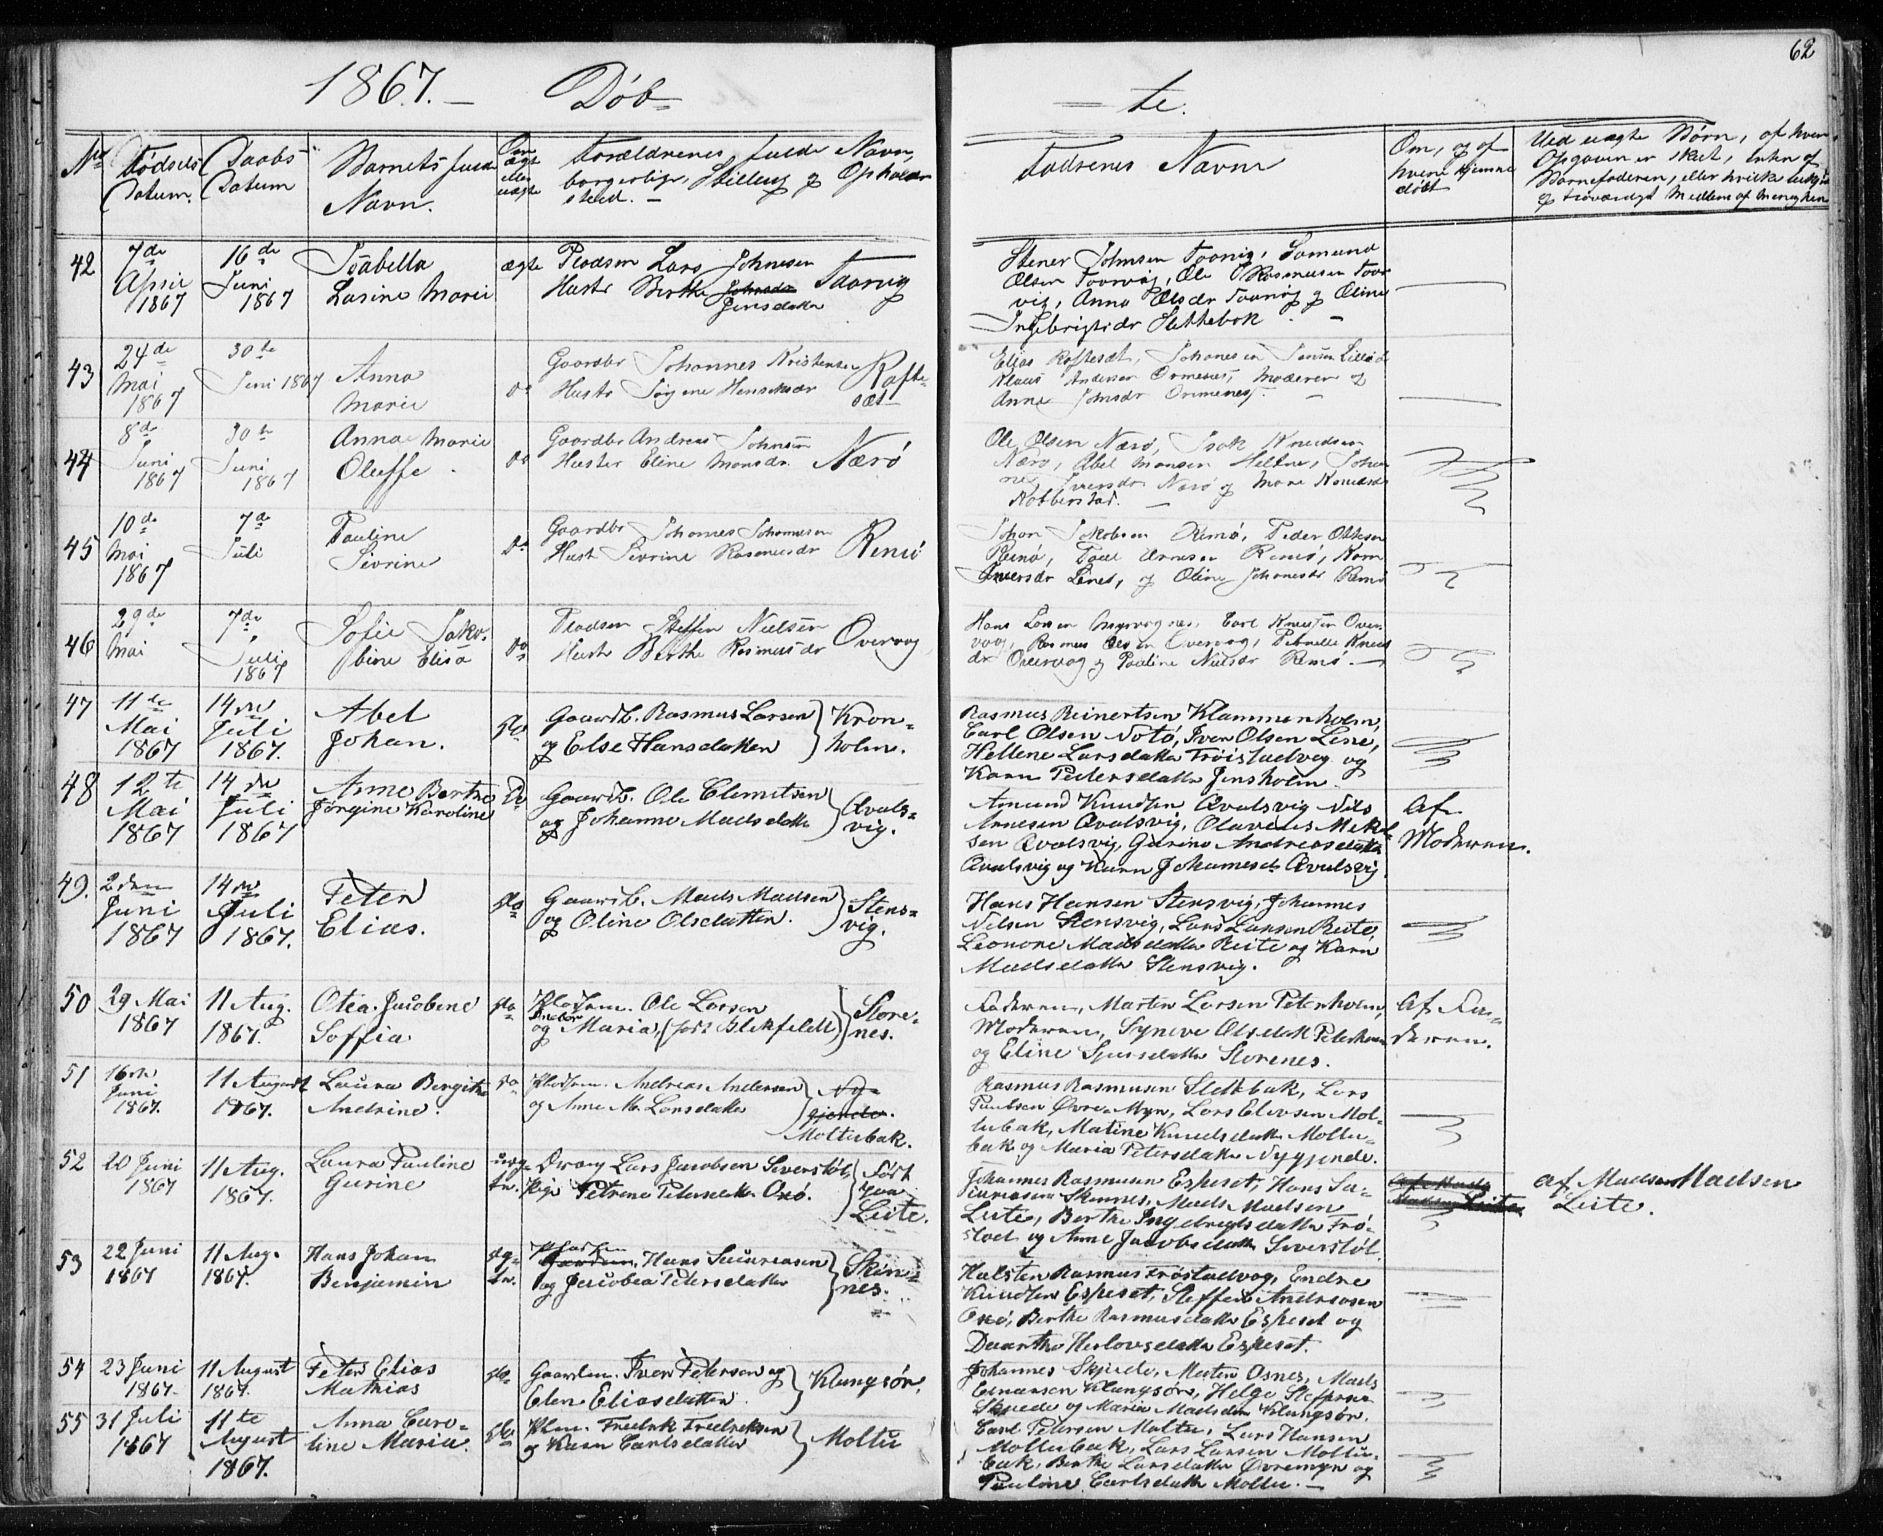 62
1867. — Døb= =te.
No Fødsels Datum. Daabs Datum Barnets fulde Navn. Om ægte eller uægte Forældrenes fulde Navn, borgerlige Stilling og Opholdssted. — Faddrenes Navne Om, og af hvem hjemmedøbt Ved uægte Børn, af hvem Opgaven er skeet, enten af Barnefaderen, eller hvilke
42 7de April 1867 16de Juni 1867 Isabella Lasine Marie ægte Pladsm Lars Johnsen Hustr Berthe Jensdatter Taarvig
Stener Johnsen Taarvig, Samund
Olsen Toorvig, Ole Rasmusen Toorvig, Anna Olsdr Toorvig og Oline
Ingebrigtsdr Slettebak. —
43 24de Mai 1867 30te Juni 1867 Anna Marie do Gaardbr Johannes Kristensen Hustr Jørgine Henriksdr Raftesæt
Elias Raftesæt, Johanes
Klaus Andersen Ormenes, Moderen og
Anne Johnsdr Ormenes. —
44 8de Juni 1867 30te Juni 1867 Anna Marie Oluffe. do Gaardbr Andreas Johnsen Hustr Eline Monsdr. Nærø
Ole Olsen Nærø, Isak Knudsen
Nærø, Abel Monsen Heltne, Johanne Iversdr Nærø og Marie Knudsdr
Kobberstad. —
45 10de Mai 1867 7de Juli Pauline Sivrine do Gaardbr Johannes Johannesen Hust Sivrine Rasmusdr Remø
Johan Jakobsen Remø, Peder Ottesen
Remø, Paul Arnesen Remø, Karn
Iversdr Lines, og Oline Johanesdr Remø
46 29de Mai 7de Juli 1867 Sofie Jakobine Elisa do Pladsm Steffen Nielsen Hustr Berthe Rasmusdr Overvog
Hans Larsen Myrvognæs, Carl Knudsen Overvog, Rasmus Olsen Overvog, Petrnelle Knudsdr Overvog og Pauline Nielsdr Remø. —
47 11de Mai 1867 14de Juli 1867. Abel Johan. do Gaardb. Rasmus Larsen og Else Hansdatter Kronholm.
Rasmus Reinertsen Klammerholm,
Carl Olsen Notø, Iver Olsen Line,
Hellene Larsdatter Frøistadvig og
Karn Pedersdatter Jensholm.
48 12te Mai 1867 14de Juli 1867 Anne Berthe Jørgine Karoline do Gaardb. Ole Clemetsen og Johanne Madsdatter Qvalsvig.
Amund Knudsen Qvalsvig Nils
Arnesen Qvalsvig, Olavius Mikelsen Qvalsvig, Gurine Andreasdatter
Qvalsvig og Karn Johannesdr Qvalsvig
Af Moderen.
49. 2den Juni 1867 14de Juli 1867. Peter Elias. do Gaardb. Mads Madsen og Oline Olsdatter. Stensvig.
Hans Hansen Stensvig, Johannes
Nilsen Stensvig, Lars Larsen Reite,
Leonore Madsdatter Reite og Karn
Madsdatter Stensvig.
50 29 Mai 1867 11 Aug. 1867. Otea Jacobine Soffia do Pladsm. Ole Larsen og Maria, (født Blekfeldt) Storenes.
Faderen, Martin Larsen Peterholm,
Moderen, Syneve Olsdatt Peterholm
og Eline Sjursdatter Storenes.
Af Faderen.
51 16de Juni 1867. 11 August 1867. Laura Bergithe Andrine. do Pladsm. Andreas Andersen og Anne M. Larsdatter Nygjende. Moltubak.
Rasmus Rasmusen Slettebak, Lars
Paulsen Øvre-Myn, Lars Elvosen Moltubak, Matine Knudsdatter Moltubak og Maria Petersdatter Nygjende.
52 20 Juni 1867 11 Aug. 1867. Laura Pauline Gurine uægte. Dreng Lars Jacobsen Siverstøl, Pige Petrine Petersdatter Oxø. født paa Leite.
Johannes Rasmusen Espeset, Hans Sacariasen Skinnes, Mads Madsen
Leite, Berthe Ingebrigtsdatter Frøstvet og Anne Jacobsdatter Siverstøl.
Af Mads Madsen Leite
af Mads Madsen Leite.
53 22 Juni 1867 11 Aug. 1867. Hans Johan Benjamin ægte. Pladsm Gaardm. Hans Sacariasen og Jacobea Petersdatter Skinnes.
Halsten Rasmus Frøstadvog, Endre
Knudsen Espeset, Steffen Andreasen
Oxø, Berthe Rasmusdatter Espeset og
Daarthe Herlovsdatter Espeset.
54 23 Juni 1867- 11 August 1867. Peter Elias Mathias do. Gaardm. Iver Petersen og Elen Eliasdatter. Klungsør.
Johannes Skjeide, Morten Osnes, Mads
Einarsen Klungsør, Helge Steffensen
Skjeide og Maria Madsdatter Klungsør.
55 31 Juli 1867 11te August 1867. Anna Caroline Maria. do Plm. Fredrik Fredriksen og Karn Carlsdatter Moltu
Carl Petersen Moltu, Lars Hansen
Moltubak, Lars Larsen Moltubak, Berthe Larsdatter Øvremyn og
Pauline Carlsdatter Moltu. —